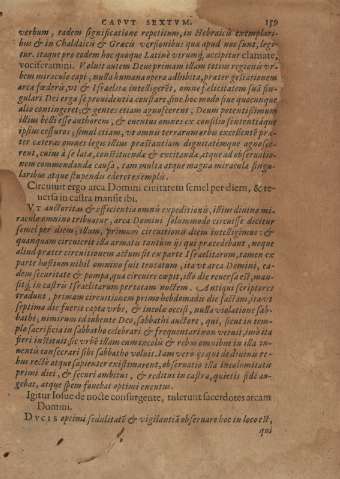 CAPVT SEXTVM. 159
verbum, eadem significatione repetitum, in Hebraicis exemplari-
bus & in Chaldaicis & Græcis versionibus quæ apud nos sunt, legi-
tur. itaque pro eodem hoc quoque Latinè vtrumq; accipiter clamate,
vociferamini. Voluit autem Deus primam illam totius regionis vr-
bem miraculo capi, nulla humana opera adhibita, præter gestationem
arcæ fœderis, vti & Israelita intelligerēt, omne felicitatem suā sin-
gulari Dei erga se prouidentia constare, sine hoc modo siue quocunque
alio contingeret; & gentes etiam agnoscerent, Deum potentissimum
illius belli esse authorem, & euentus omnes ex consilio sententiaque
ipsius cessuros; simul etiam, vt omnis terrarum orbis excellentē præ-
ter cæteras omnes legis illius præstantium dignitatemque agnosce-
rent, cuius à se latæ, constituendæ & excitandæ, atque ad obseruatio-
nem commendandæ causa, tam multa atque magna miracula singu-
laribus atque stupendis ederet exemplis.
Circuiuit ergo arca Domini ciuitatem semel per diem, & re-
uersa in castra mansit ibi.
VT auctoritas & efficientia omnis expeditionis, illius diuino mi-
raculo omnino tribuatur, arca Domini solummodo circuisse dicitur
semel per diem; illam, primum circuitionis diem intelligimus: &
quamquam circuierit illa armatis tantùm ijs qui præcedebant, neque
aliud præter circuitionem actum sit ex parte Israelitarum, tamen ex
parte hostium nihil omnino fuit tentatum, ita vt arca Domini, ea-
dem securitate & pompa, qua circuire cæpit, illo die reuersa est, man-
sitq; in castris Israelitarum per totam noctem. Antiqui scriptores
tradunt, primam circuitionem primo hebdomadis die factam, ita vt
septimo die fuerit capta vrbs, & incolæ occisi, nulla violatione sab-
bathi; nimirum id iubente Deo, sabbathi auctore, qui, sicut in tem-
plo sacrificia in sabbatho celebrari & frequentari non vetuit, imò ita
fieri instituit: sic vrbē illam cum incolis & rebus omnibus in illa in-
uentis consecrari sibi sabbatho voluit. Iam vero ijs qui de diuinis re-
bus rectè atque sapienter existimarent, obseruatio illa incolumitatis
primi diei, & securi ambitus, & reditus in castra, quietis fidē au-
gebat, atque spem summæ optimi euentus.
Igitur Iosue de nocte consurgente, tulerunt sacerdotes arcam
Domini.
DVCIS optimi sedulitatē & vigilantiā obseruare hoc in loco est,
qui